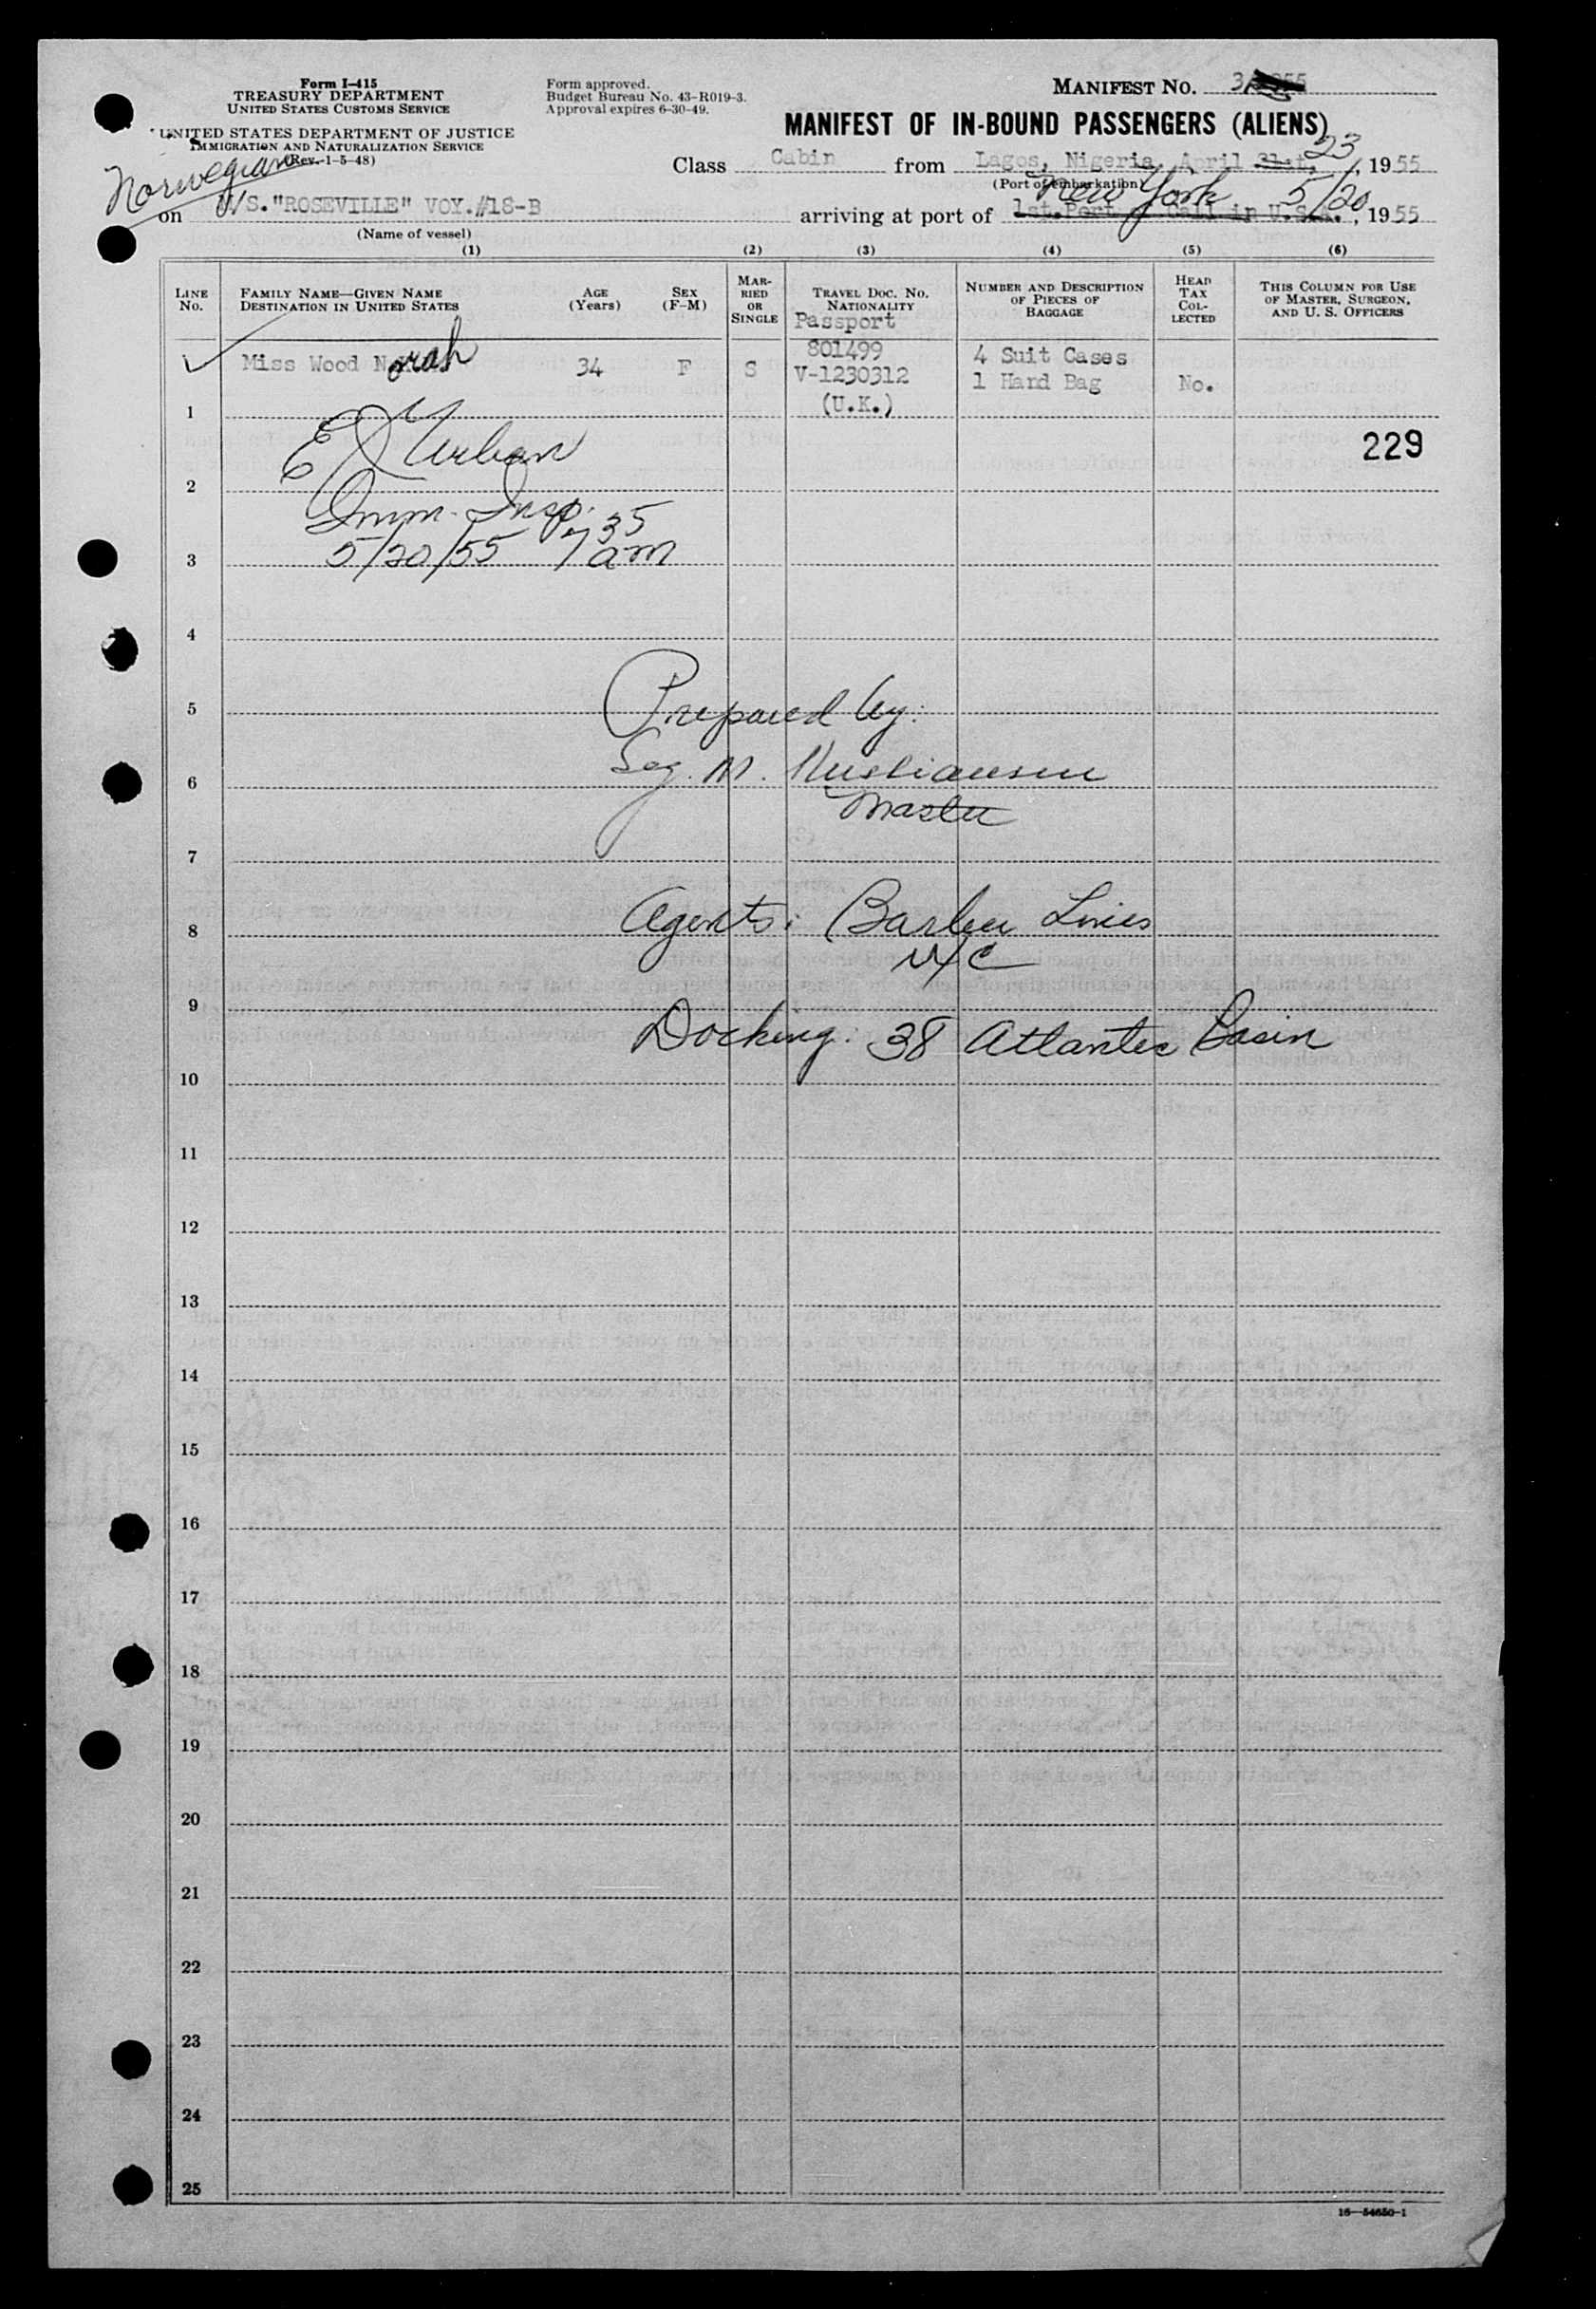 Form I-415
TREASURY DEPARTMENT
UNITED STATES CUSTOMS SERVICE
UNITED STATES DEPARTMENT OF JUSTICE
IMMIGRATION AND NATURALIZATION SERVICE
(Rev. 1-5-48)
Form approved.
Budget Bureau No. 43-R019-3.
Approval expires 6-30-49.
MANIFEST NO. 3
MANIFEST OF IN-BOUND PASSENGERS (ALIENS)
Class Cabin from Lagos, Nigeria, April 21st, 23, 1955
(Port of embarkation)
Norwegian
on M/S."ROSEVILLE" VOY.#18-B
(Name of vessel)
arriving at port of New York 5/20, 1955
1st. Port Call in U.S.A.
(1) (2) (3) (4) (5) (6)
LINE NO.
FAMILY NAME—GIVEN NAME
DESTINATION IN UNITED STATES
AGE (Years)
SEX (F-M)
MARRIED OR SINGLE
TRAVEL DOC. NO.
NATIONALITY
Passport
NUMBER AND DESCRIPTION OF PIECES OF BAGGAGE
HEAD TAX COLLECTED
THIS COLUMN FOR USE OF MASTER, SURGEON, AND U. S. OFFICERS
Miss Wood Norah 34 F S
801499
V-1230312
(U.K.)
4 Suit Cases
1 Hand Bag
No.
1
229
E J Urban
2
Imm. Insp.
5/20/55 7 35 am
3
4
Prepared by:
5
M. Kristiansen
6
Master
7
Agents: Barber Lines
8
NYC
9
Docking: 38 Atlantic Basin
10
11
12
13
14
15
16
17
18
19
20
21
22
23
24
25
16—54650-1